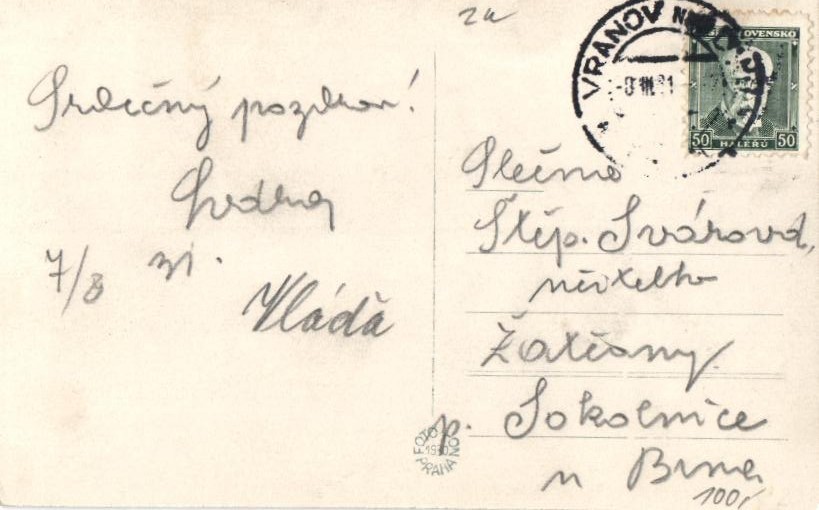 za
VRANOV NAD DYJÍ
-8.VIII.31
OVENSKO
50 HALÉŘŮ 50
Srdečný pozdrav!
7/8 31.
Vláďa
Slečna
Štěp. Svárová,
učitelka
Žatčany.
p. Sokolnice
u Brna
FOTO
1930
PRAHA
100,-